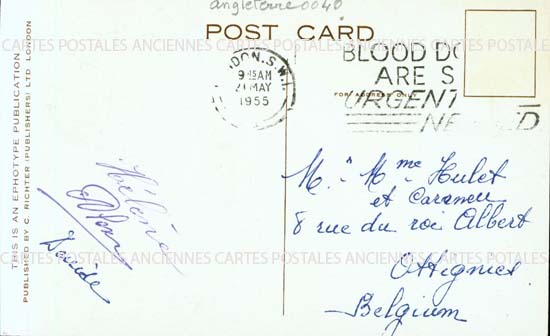 angleterre0040
POST CARD
CARTES POSTALES ANCIENNES CARTES POSTALES ANCIENNES CARTES
LONDON.S.W.1
9 15 AM
21 MAY
1955
BLOOD DO
ARE S
URGENT
NEEDED
FOR ADDRESS ONLY
THIS IS AN EPHOTYPE PUBLICATION
PUBLISHED BY C. RICHTER (PUBLISHERS) LTD. LONDON
Denise
M. - Mme Hulet
et
8 rue du roi Albert
Ottignies
Belgium
ANCIENNES CARTES POSTALES ANCIENNES CARTES POSTALES